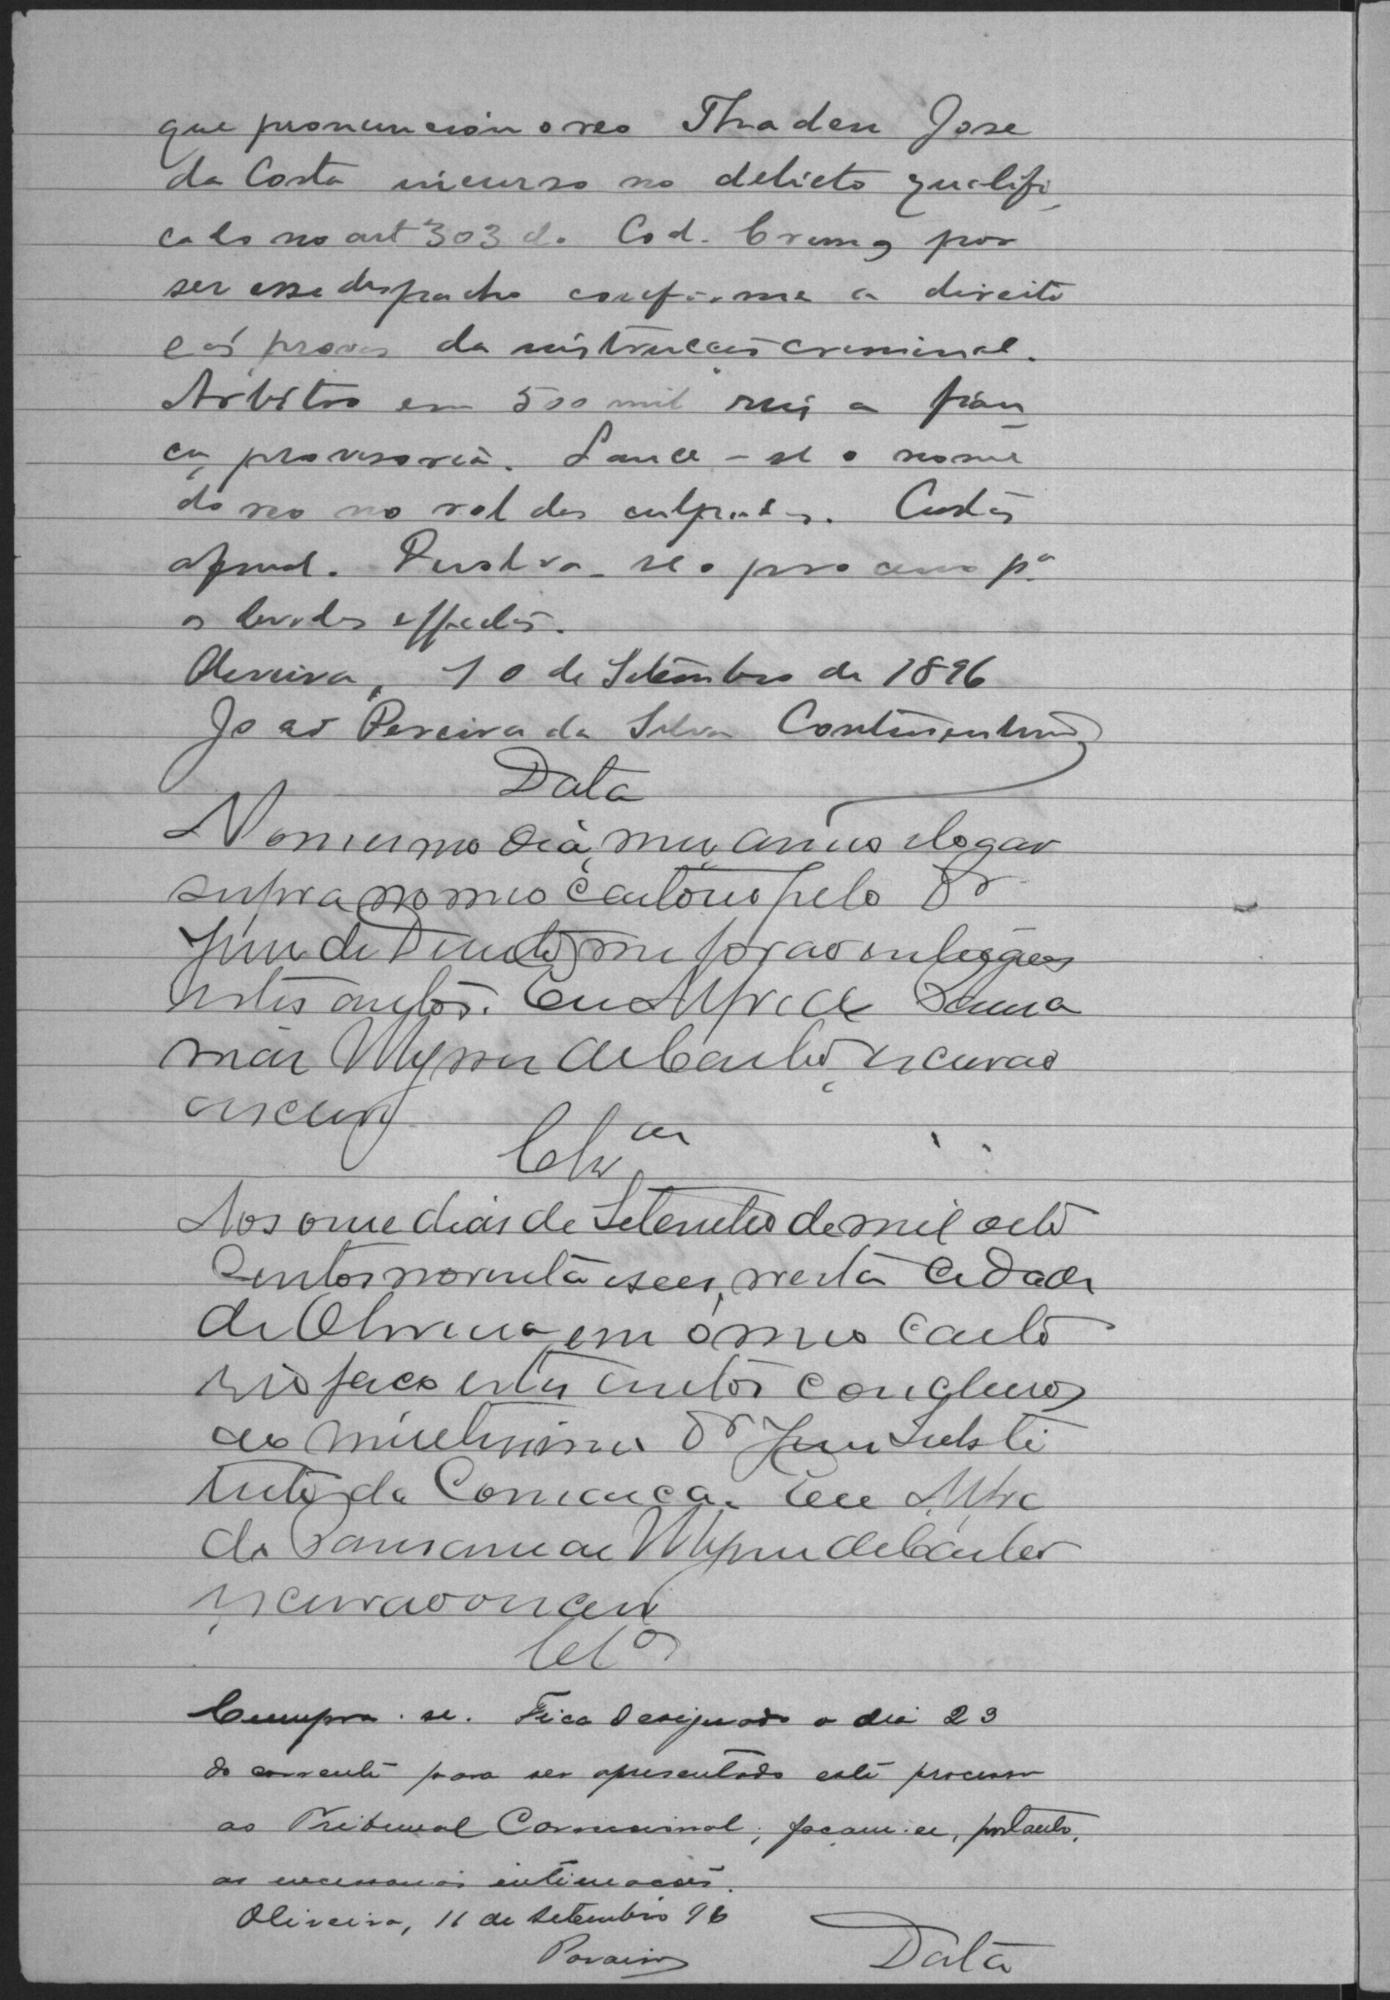 que pronunciou o reo Thadeu Jose
da Costa incurso no delicto qualifi
cado no art 303 do Cod. Crim, por
ser esse despacho conforme a direito
e ás provas da instrucção criminal.
Arbitro em 500 mil reis a fian
ça provisoria. Lance-se o nome
do reo no rol dos culpados. Custas
afinal. Devolva-se o processo pª
os devidos effeitos.
Oliveira, 10 de Setembro de 1896
João Pereira da Silva Continentino
Data
No mesmo dia, mez, anno e logar
supra no meo cartorio pelo Dr
Juiz de Direito me forão entregues
estes autos. Eu Alfredo
de Castro, escrivão
o escrevi
Clsam
Aos onze dias de Setembro de mil oito
centos noventa e seis, nesta cidade
de Oliveira em o meo carto
rio faço estes autos conclusos
ao meretissimo Dr Juiz Substi
tuto da Comarca. Eu Alfre
do de Castro
escrivão o escrevi
Clos
Cumpra-se. Fica designado o dia 23
do corrente para ser apresentado este processo
ao Tribunal Correccional; façam-se, portanto,
as necessarias intimações.
Oliveira, 11 de Setembro 96
Data